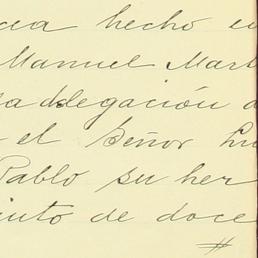 hecho en
Manuel Mart
la delegación d
el Señor Lu
Pablo su her
iento de doce